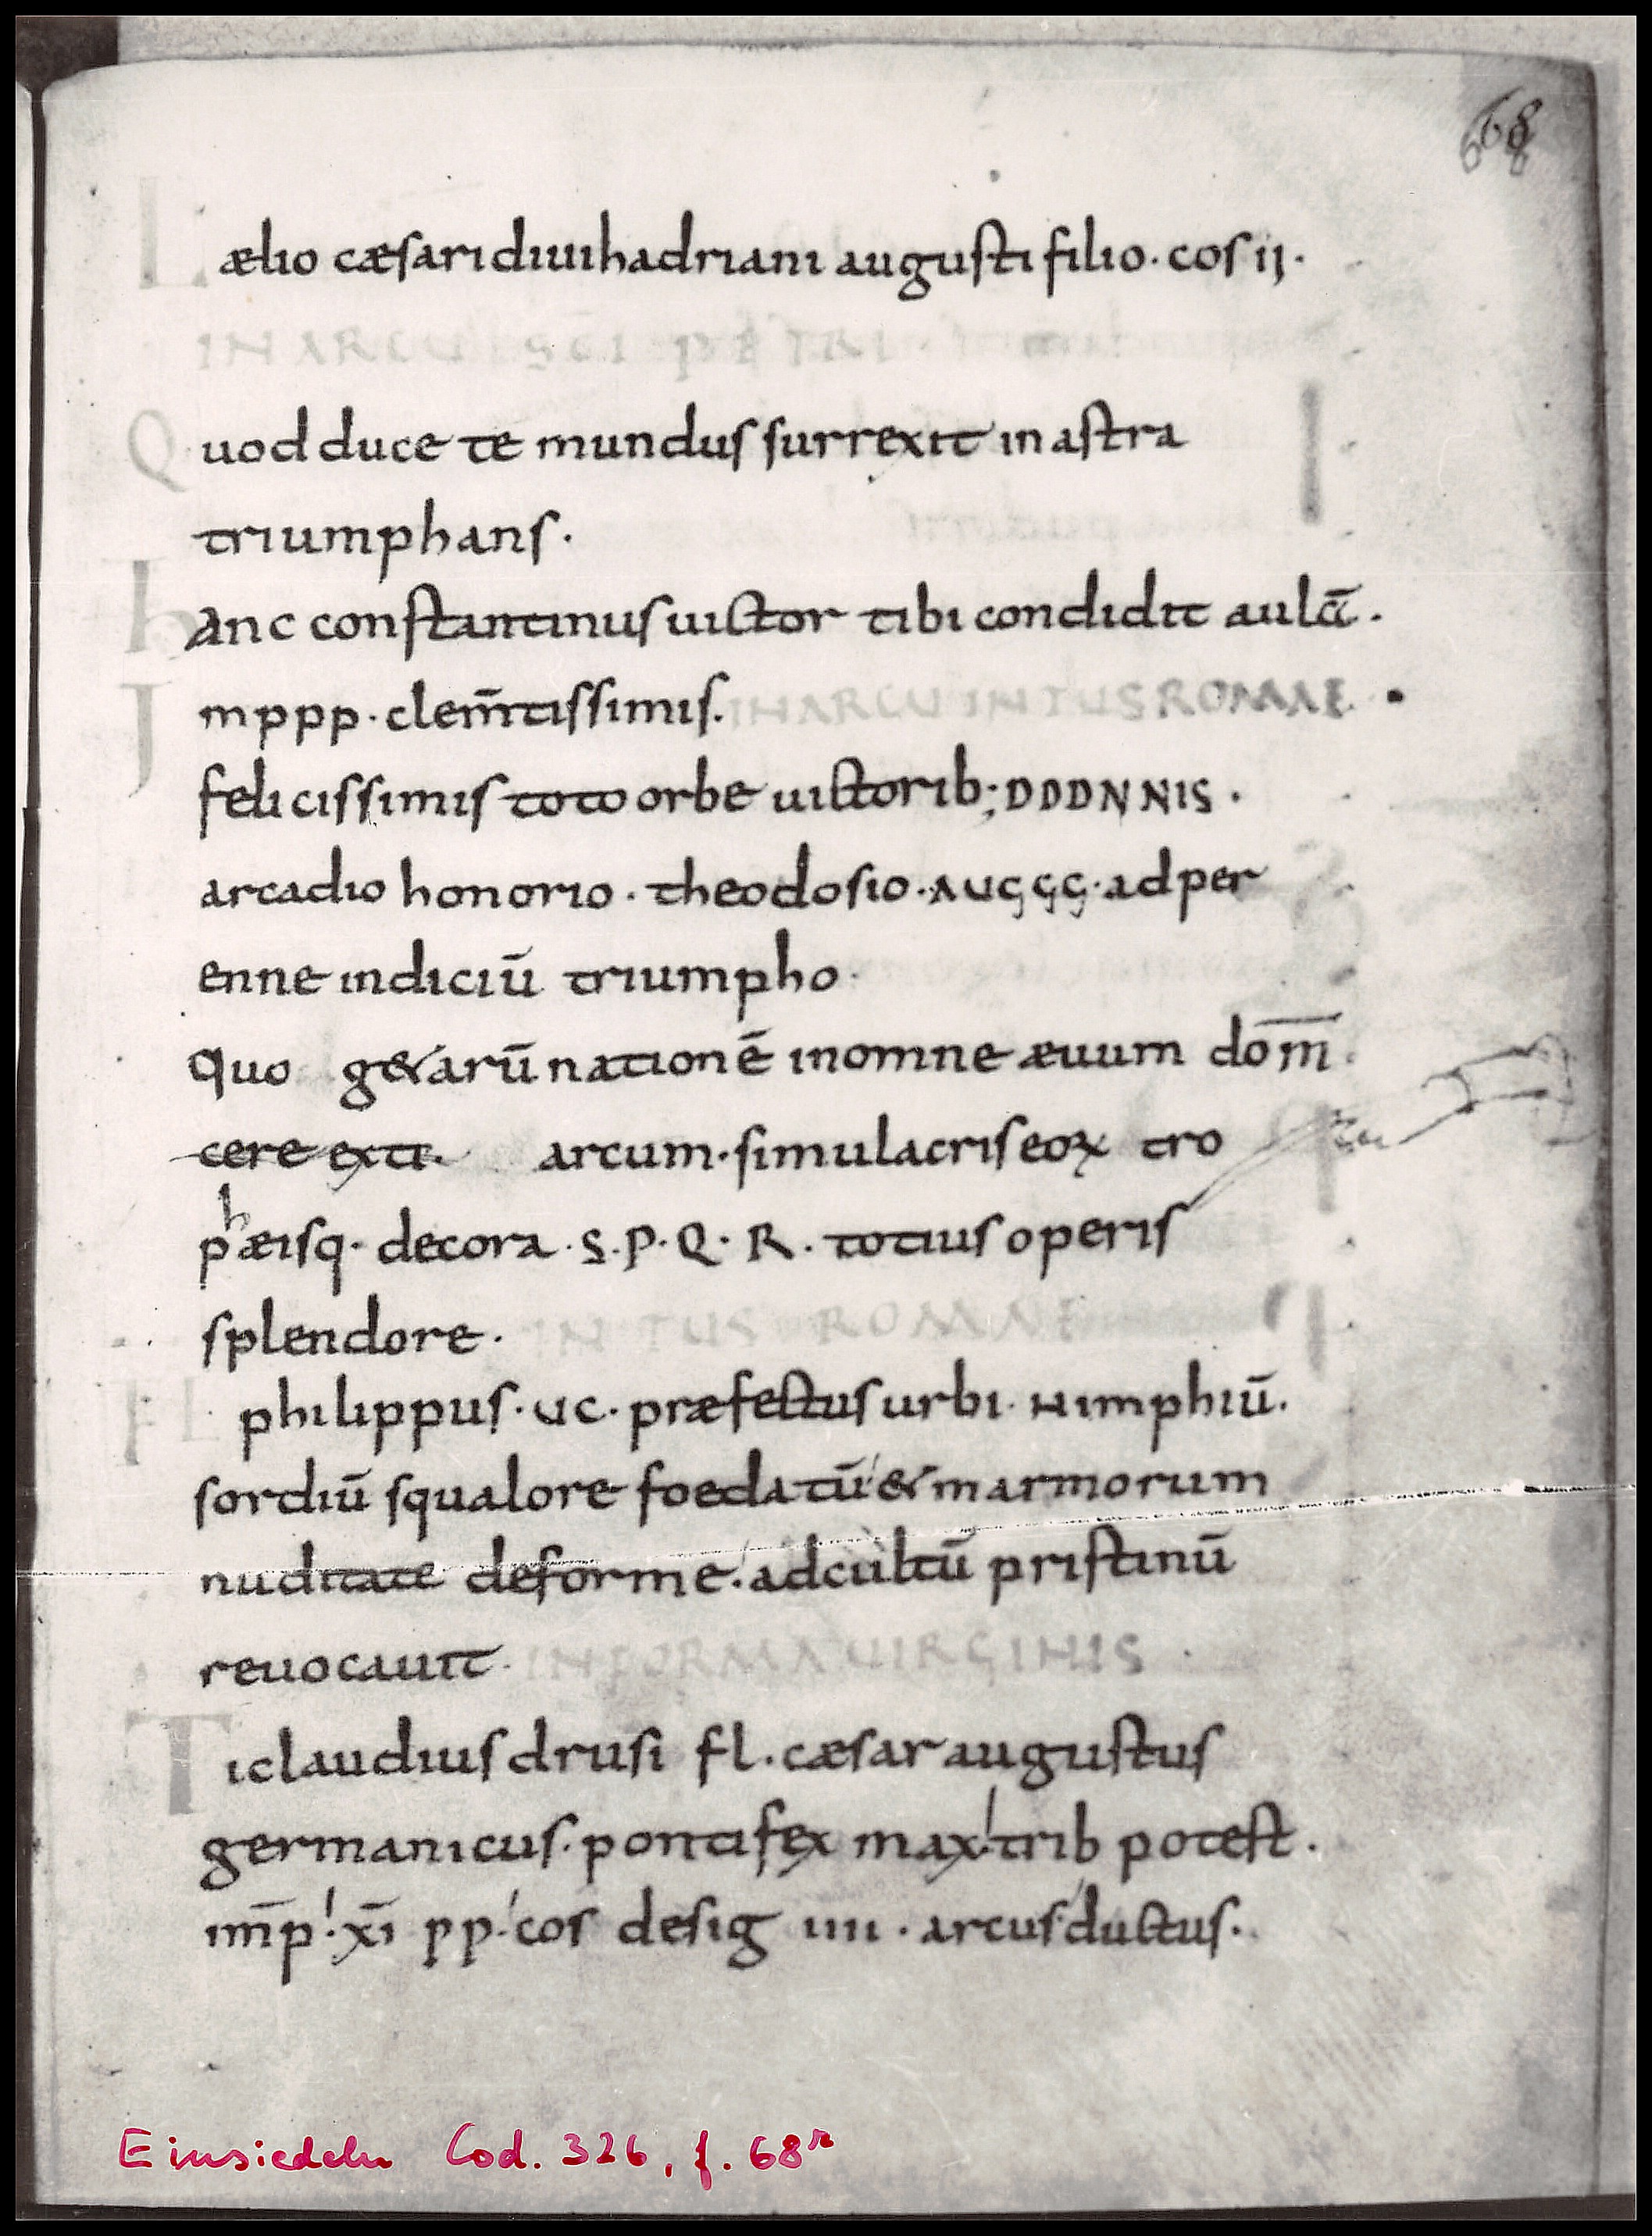 68
L ælio cæsari diui hadriani augusti filio · cos ii ·
IN ARCU SCI PETRI
Quod duce te mundus surrexit in astra
triumphans ·
hanc constantinus uictor tibi condidit aulā ·
Imppp · clem̄tissimis · IN ARCU INTUS ROMAE ·
felicissimis toto orbe uictorib; DDDNNIS ·
arcadio honorio · theodosio · AUGGG · ad per
enne indiciū triumpho ·
quo g&arū nationē in omne æuum dom̄
cere exti · arcum · simulacris eoꝝ tro
phæisq · decora · S · P · Q · R · totius operis
splendore · INTUS ROMAE
FL philippus · UC · præfectus urbi · Nimphiū ·
sordiū squalore foedatū & marmorum
nuditate deforme · ad cultū pristinū
reuocauit · IN FORMA UIRGINIS ·
Ti claudius drusi fl · cæsar augustus
germanicus · pontifex max · trib potest ·
im̄p · xī pp · cos desig iiii · arcus ductus ·
Einsiedeln Cod. 326, f. 68r